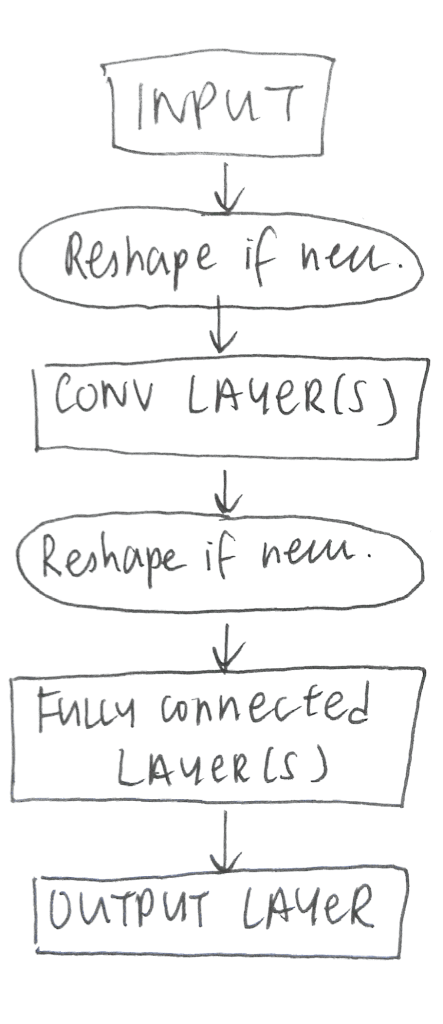 INPUT
Reshape if necc.
CONV LAYER(S)
Reshape if necc.
Fully connected
LAYER(S)
OUTPUT LAYER